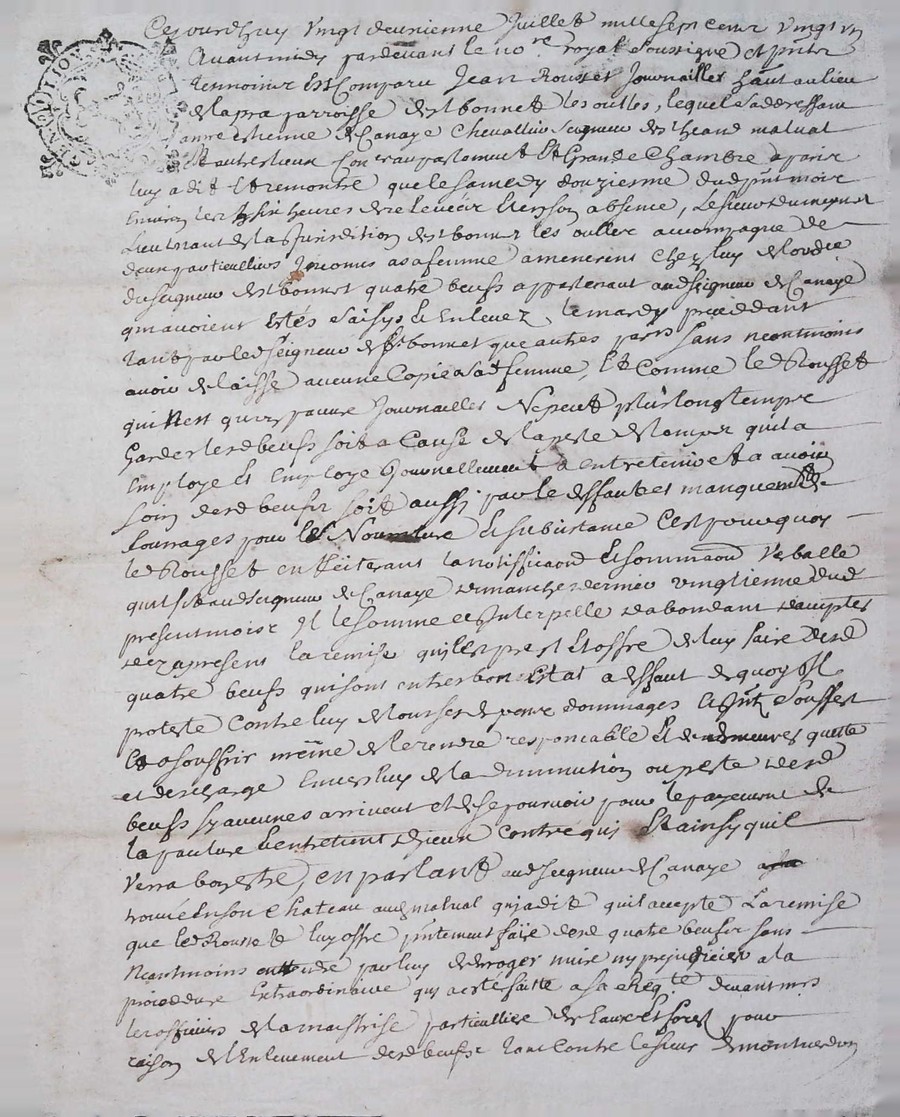 Cejourdhuy vingt deuxiesme Juillet mille sept cent vingt un
Avant midy pardevant le nore royal soussigné et pntz
tesmoins Est Comparu Jean Rousset Journaillet hant au lieu
de lapra parroisse de st bonnet les oulles, lequel sadressant
a mre estienne de Canaye Chevallier seigneur des
et autres lieux Conser au parlement Et Grande Chambre a paris
luy a dit Et remontré que le samedy douziesme dud pnt mois
Environ les heures de relevée Et en son absence, le sieur
Lieutenant de la Jurisdition de st bonnet les oulles accompagné de
deux particulliers Inconus a sa femme amenerent Chez luy de lordre
du seigneur de st bonnet quatre beufs appartenant aud seigneur de Canaye
qui avoient Estés saisys Et Enlevez, le mardy preceddant
tant par led seigneur de st bonnet que autres sans neantmoins
avoir delaissé aucune Copie a sad femme, Et Comme led Rousset
qui nest qun pauvre Journaillet Ne peut plus longtemps
Garder lesd beufs soit a Cause de la perte de temps quil a
Employé Et Employe Journellement a entretenir et a avoir
soin desd beufs soit aussy par le deffaut et manquement de
fourrages pour les Nourriture Et subsistance Cest pourquoy
led Rousset en Reiterant la notiffication Et sommation Verballe
quil fit aud seigneur de Canaye dimanche dernier vingtiesme dud
present mois Il le somme et Interpelle dabondant daccepter
dez apresent la remise quil est prest Et offre de luy faire desd
quatre beufs qui sont en tres bon Estat a deffaut de quoy Il
proteste Contre luy de tous despens dommages Souffert
Et a souffrir mesme de le rendre responsable Et de demeurer quitte
et deschargé Envers luy de la diminution ou perte desd
beufs sy aucunes arrivent et de se pourvoir pour le payement de
la pasture Et entretient diceux Contre qui Et ainsy quil
verra bon estre, en parlant aud seigneur de Canaye
trouvé En son Chateau qui a dit quil accepte La remise
que led Rousset luy offre pntement faire desd quatre beufs sans
Neantmoins entendre par luy deroger nuire ny prejudicier a la
proceddure Extraordinaire qui a esté faitte a sa Reqte devant mrs
les officiers de la maistrise particulliere des Eaux Et forets pour
raison de lEnlevement desd beufs tant Contre le sieur de